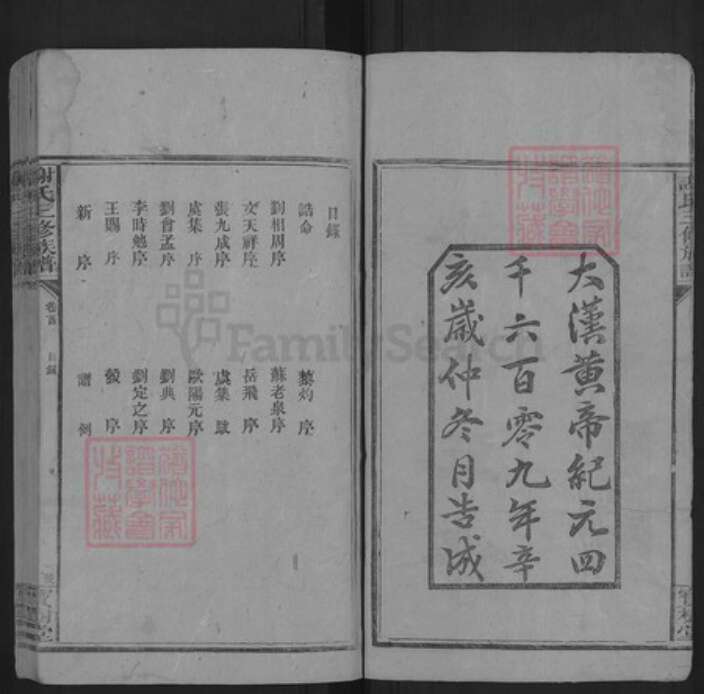 大漢黄帝紀元四
千六百零九年辛
亥歲仲冬月告成
目錄
誥命
黎灼序
劉相周序
蘇老泉序
文天祥序
岳飛序
張九成序
虞集跋
虞集序
歐陽元序
劉會孟序
劉典序
李時勉序
劉定之序
王賜序
新序
譜例
謝氏三修族譜
卷首
目錄
寶樹堂
FamilySearch